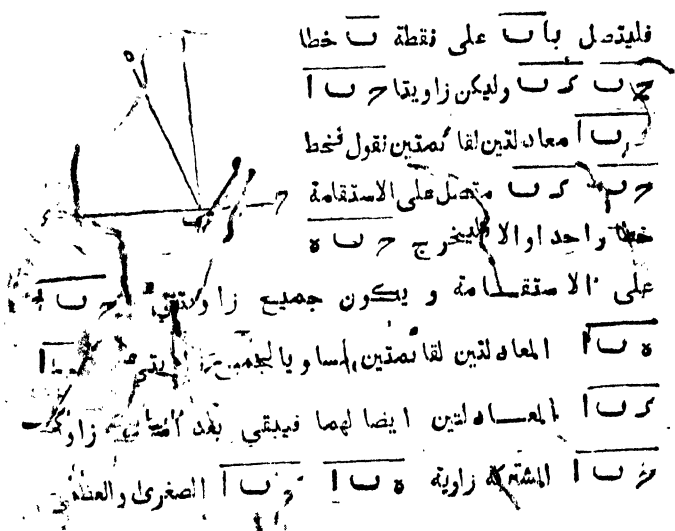 فليتصل باٮ على نقطة ٮ خطا
حٮ كٮ وليكن زاويتا حٮا
كٮا معادلتين لقائمتين نقول فخط
حٮ كٮ متصل على الاستقامة
خطا واحدا والا فليخرج حٮه
على الاستقامة ويكون جميع زاويتي حٮا
هٮا المعادلتين لقائمتين مساويا لجميع
كٮا المعادلتين ايضا لهما فيبقي بعد
حٮا المشتركة زاوية هٮا كٮا الصغرى والعظمى